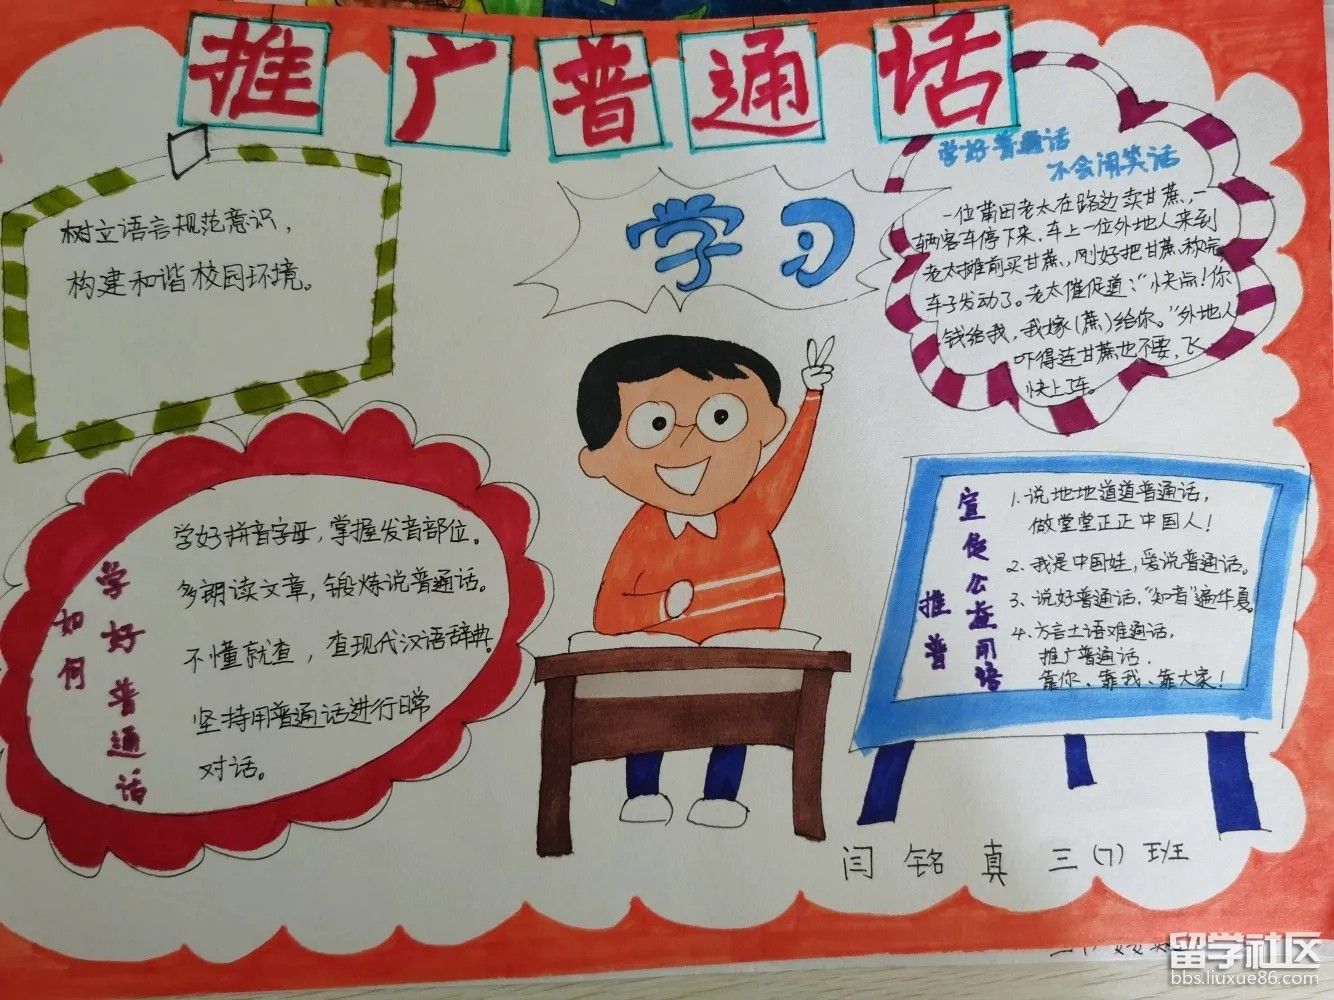 推广普通话
树立语言规范意识，
构建和谐校园环境。
学习
学好普通话
不会闹笑话
一位莆田老太在路边卖甘蔗，一
辆客车停下来，车上一位外地人来到
老太摊前买甘蔗，刚好把甘蔗称完，
车子发动了。老太催促道：“快点！你
钱给我，我嫁（蔗）给你。”外地人
吓得连甘蔗也不要，飞
快上了车。
如何
学好普通话
学好拼音字母，掌握发音部位。
多朗读文章，锻炼说普通话。
不懂就查，查现代汉语辞典。
坚持用普通话进行日常
对话。
推普
宣传公益用语
1. 说地地道道普通话，
做堂堂正正中国人！
2. 我是中国娃，爱说普通话。
3. 说好普通话，“知音”遍华夏。
4. 方言土语难通话，
推广普通话，
靠你、靠我、靠大家！
闫铭真 三(7)班
留学社区
bbs.liuxue86.com